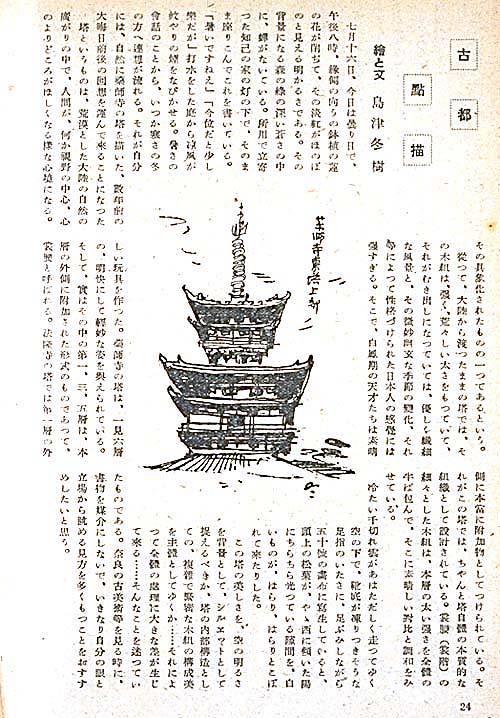 古都
點描
繪と文 島津冬樹
七月十六日、今日は曇り日で、
午後八時、縁側の向うの鉢植の蓮
の花が出さて、その淡紅がほのぼ
のと見える明かるさである。その
背景になる森の緑の深い蒼さの中
に、蟬がないている。所用で立寄
つた知己の家の灯の下で、そのま
ま座りこんでこれを書いている。
「暑いですねえ」「今位だと少し
樂だが」打水をした庭から涼風が
蚊やりの煙をなびかせる。暑さの
會話のことから、いつか寒さの冬
の方へ連想が流れる。それが自分
には、自然に藥師寺の塔を描いた、數年前の
大晦日前後の回想を運んで來ることになつた
塔というものは、荒漠とした大陸の自然の
廣がりの中で、人間が、何か視野の中心、心
のよりどころがほしくなる樣な心境になる。
その具象化されたものの一つであるという。
從つて、大陸から渡つたままの塔では、そ
の木組は、强く、荒々しい太さをもつていて、
それがむき出しになつていては、優しく繊細
な風景と、その微妙幽玄な季節の變化、それ
等によつて性格づけられた日本人の感覺には
强すぎる。そこで、白鳳期の天才たちは素晴
藥師寺東塔上部
しい玩具を作つた。藥師寺の塔は、一見六層
の、明快にして輕妙な姿を與えられている。
そして、實はその中の第一、三、五層は、本
層の外側に附加された形式のものであつて、
裳層と呼ばれる。法隆寺の塔では第一層の外
側に本當に附加物としてつけられている。そ
れがこの塔では、ちやんと塔自體の本質的な
組織として設計されている。裳層（裳階）の
細々とした木組は、本層の太い强さを全體の
半ば包んで、そこに素晴しい對比と調和をみ
せている。
冷たい千切れ雲があはただしく走つてゆく
空の下で、靴底が凍りつきそうな
足指のいたさに、足ぶみしながら
五十號の畫布に寫生していると、
頭上の松葉が、やゝ西に傾いた陽
にちらちら光つている隙間を、白
いものが、はらり、はらりとこぼ
れて來たりした。
この塔の美しさを、空の明るさ
を背景として、シルエットとして
捉えるべきか、塔の内部構造とし
ての、複雜で緊密な木組の構成美
を主體としてゆくか……それによ
つて全體の處理に大きな差が生じ
て來る……そんなことを迷つてい
たものである。奈良の古美術等を見る時に、
書物を媒介にしないで、いきなり自分の眼と
立場から眺める見方を多くもつことをおすす
めしたいと思う。
24